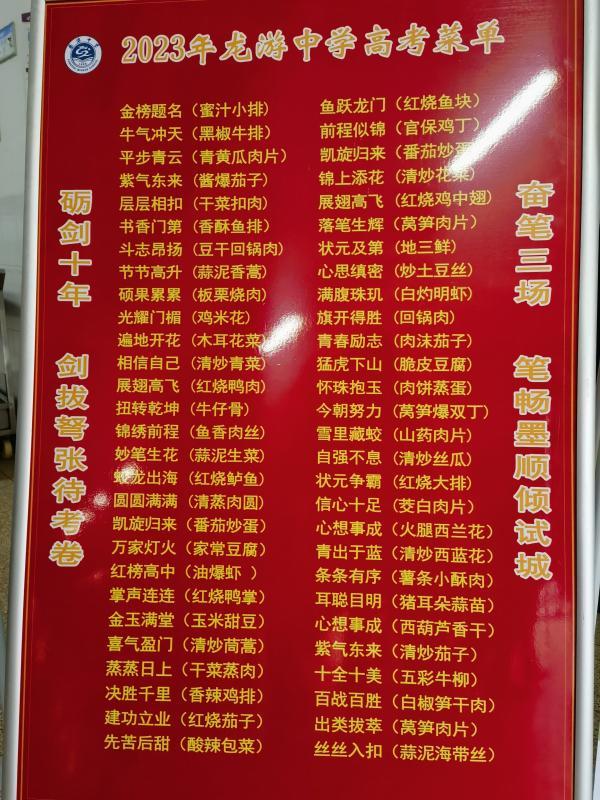 2023年龙游中学高考菜单
砺剑十年 剑拔弩张待考卷
金榜题名（蜜汁小排）
牛气冲天（黑椒牛排）
平步青云（青黄瓜肉片）
紫气东来（酱爆茄子）
层层相扣（干菜扣肉）
书香门第（香酥鱼排）
斗志昂扬（豆干回锅肉）
节节高升（蒜泥香蒿）
硕果累累（板栗烧肉）
光耀门楣（鸡米花）
遍地开花（木耳花菜）
相信自己（清炒青菜）
展翅高飞（红烧鸭肉）
扭转乾坤（牛仔骨）
锦绣前程（鱼香肉丝）
妙笔生花（蒜泥生菜）
蛟龙出海（红烧鲈鱼）
圆圆满满（清蒸肉圆）
凯旋归来（番茄炒蛋）
万家灯火（家常豆腐）
红榜高中（油爆虾 ）
掌声连连（红烧鸭掌）
金玉满堂（玉米甜豆）
喜气盈门（清炒茼蒿）
蒸蒸日上（干菜蒸肉）
决胜千里（香辣鸡排）
建功立业（红烧茄子）
先苦后甜（酸辣包菜）
鱼跃龙门（红烧鱼块）
前程似锦（官保鸡丁）
凯旋归来（番茄炒蛋）
锦上添花（清炒花菜）
展翅高飞（红烧鸡中翅）
落笔生辉（莴笋肉片）
状元及第（地三鲜）
心思缜密（炒土豆丝）
满腹珠玑（白灼明虾）
旗开得胜（回锅肉）
青春励志（肉沫茄子）
猛虎下山（脆皮豆腐）
怀珠抱玉（肉饼蒸蛋）
今朝努力（莴笋爆双丁）
雪里藏蛟（山药肉片）
自强不息（清炒丝瓜）
状元争霸（红烧大排）
信心十足（茭白肉片）
心想事成（火腿西兰花）
青出于蓝（清炒西蓝花）
条条有序（薯条小酥肉）
耳聪目明（猪耳朵蒜苗）
心想事成（西葫芦香干）
紫气东来（清炒茄子）
十全十美（五彩牛柳）
百战百胜（白椒笋干肉）
出类拔萃（莴笋肉片）
丝丝入扣（蒜泥海带丝）
奋笔三场 笔畅墨顺倾试城